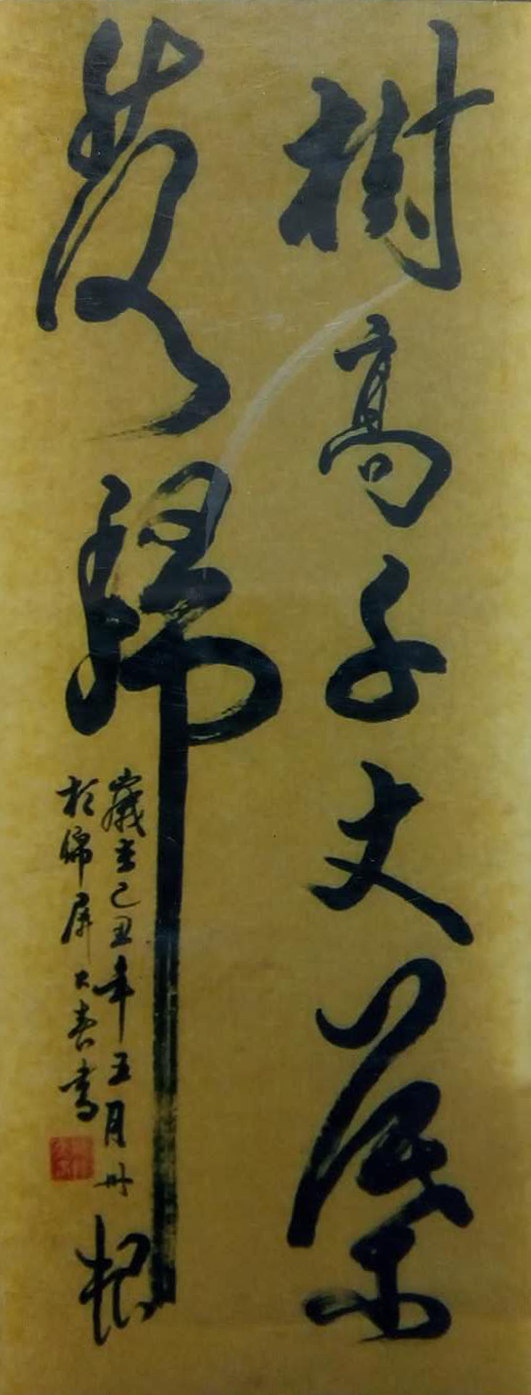 樹高千丈葉
落歸根
歲在己丑年五月卅
於錦屏春書